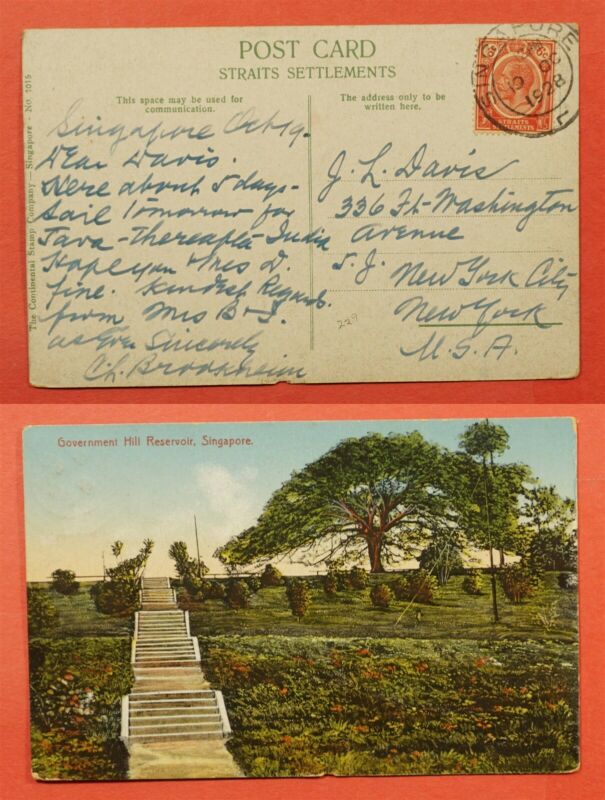 POST CARD
STRAITS SETTLEMENTS
This space may be used for
communication.
The address only to be
written here.
The Continental Stamp Company—Singapore — No. 7015
SINGAPORE
1928
STRAITS
SETTLEMENTS
Singapore Oct 19-
Dear Davis.
Here about 5 days-
Sail Tomorrow for
Java - Thereafter India
Hope you & Mrs D.
fine. Kindest Regards.
from Mrs B & I.
as Ever Sincerely
Ch. Brookheim
J. L. Davis
336 Ft. Washington
Avenue
New York City
New York
U.S.A.
229
Government Hill Reservoir, Singapore.